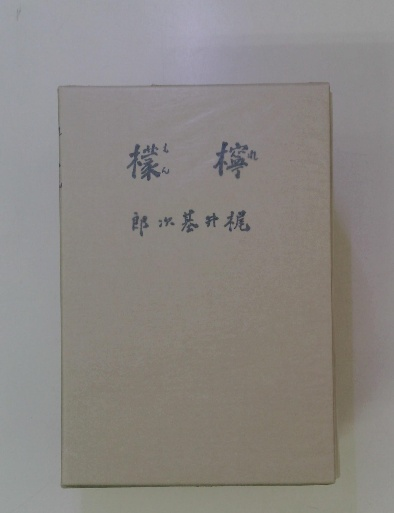 檸檬
れもん
梶井基次郎